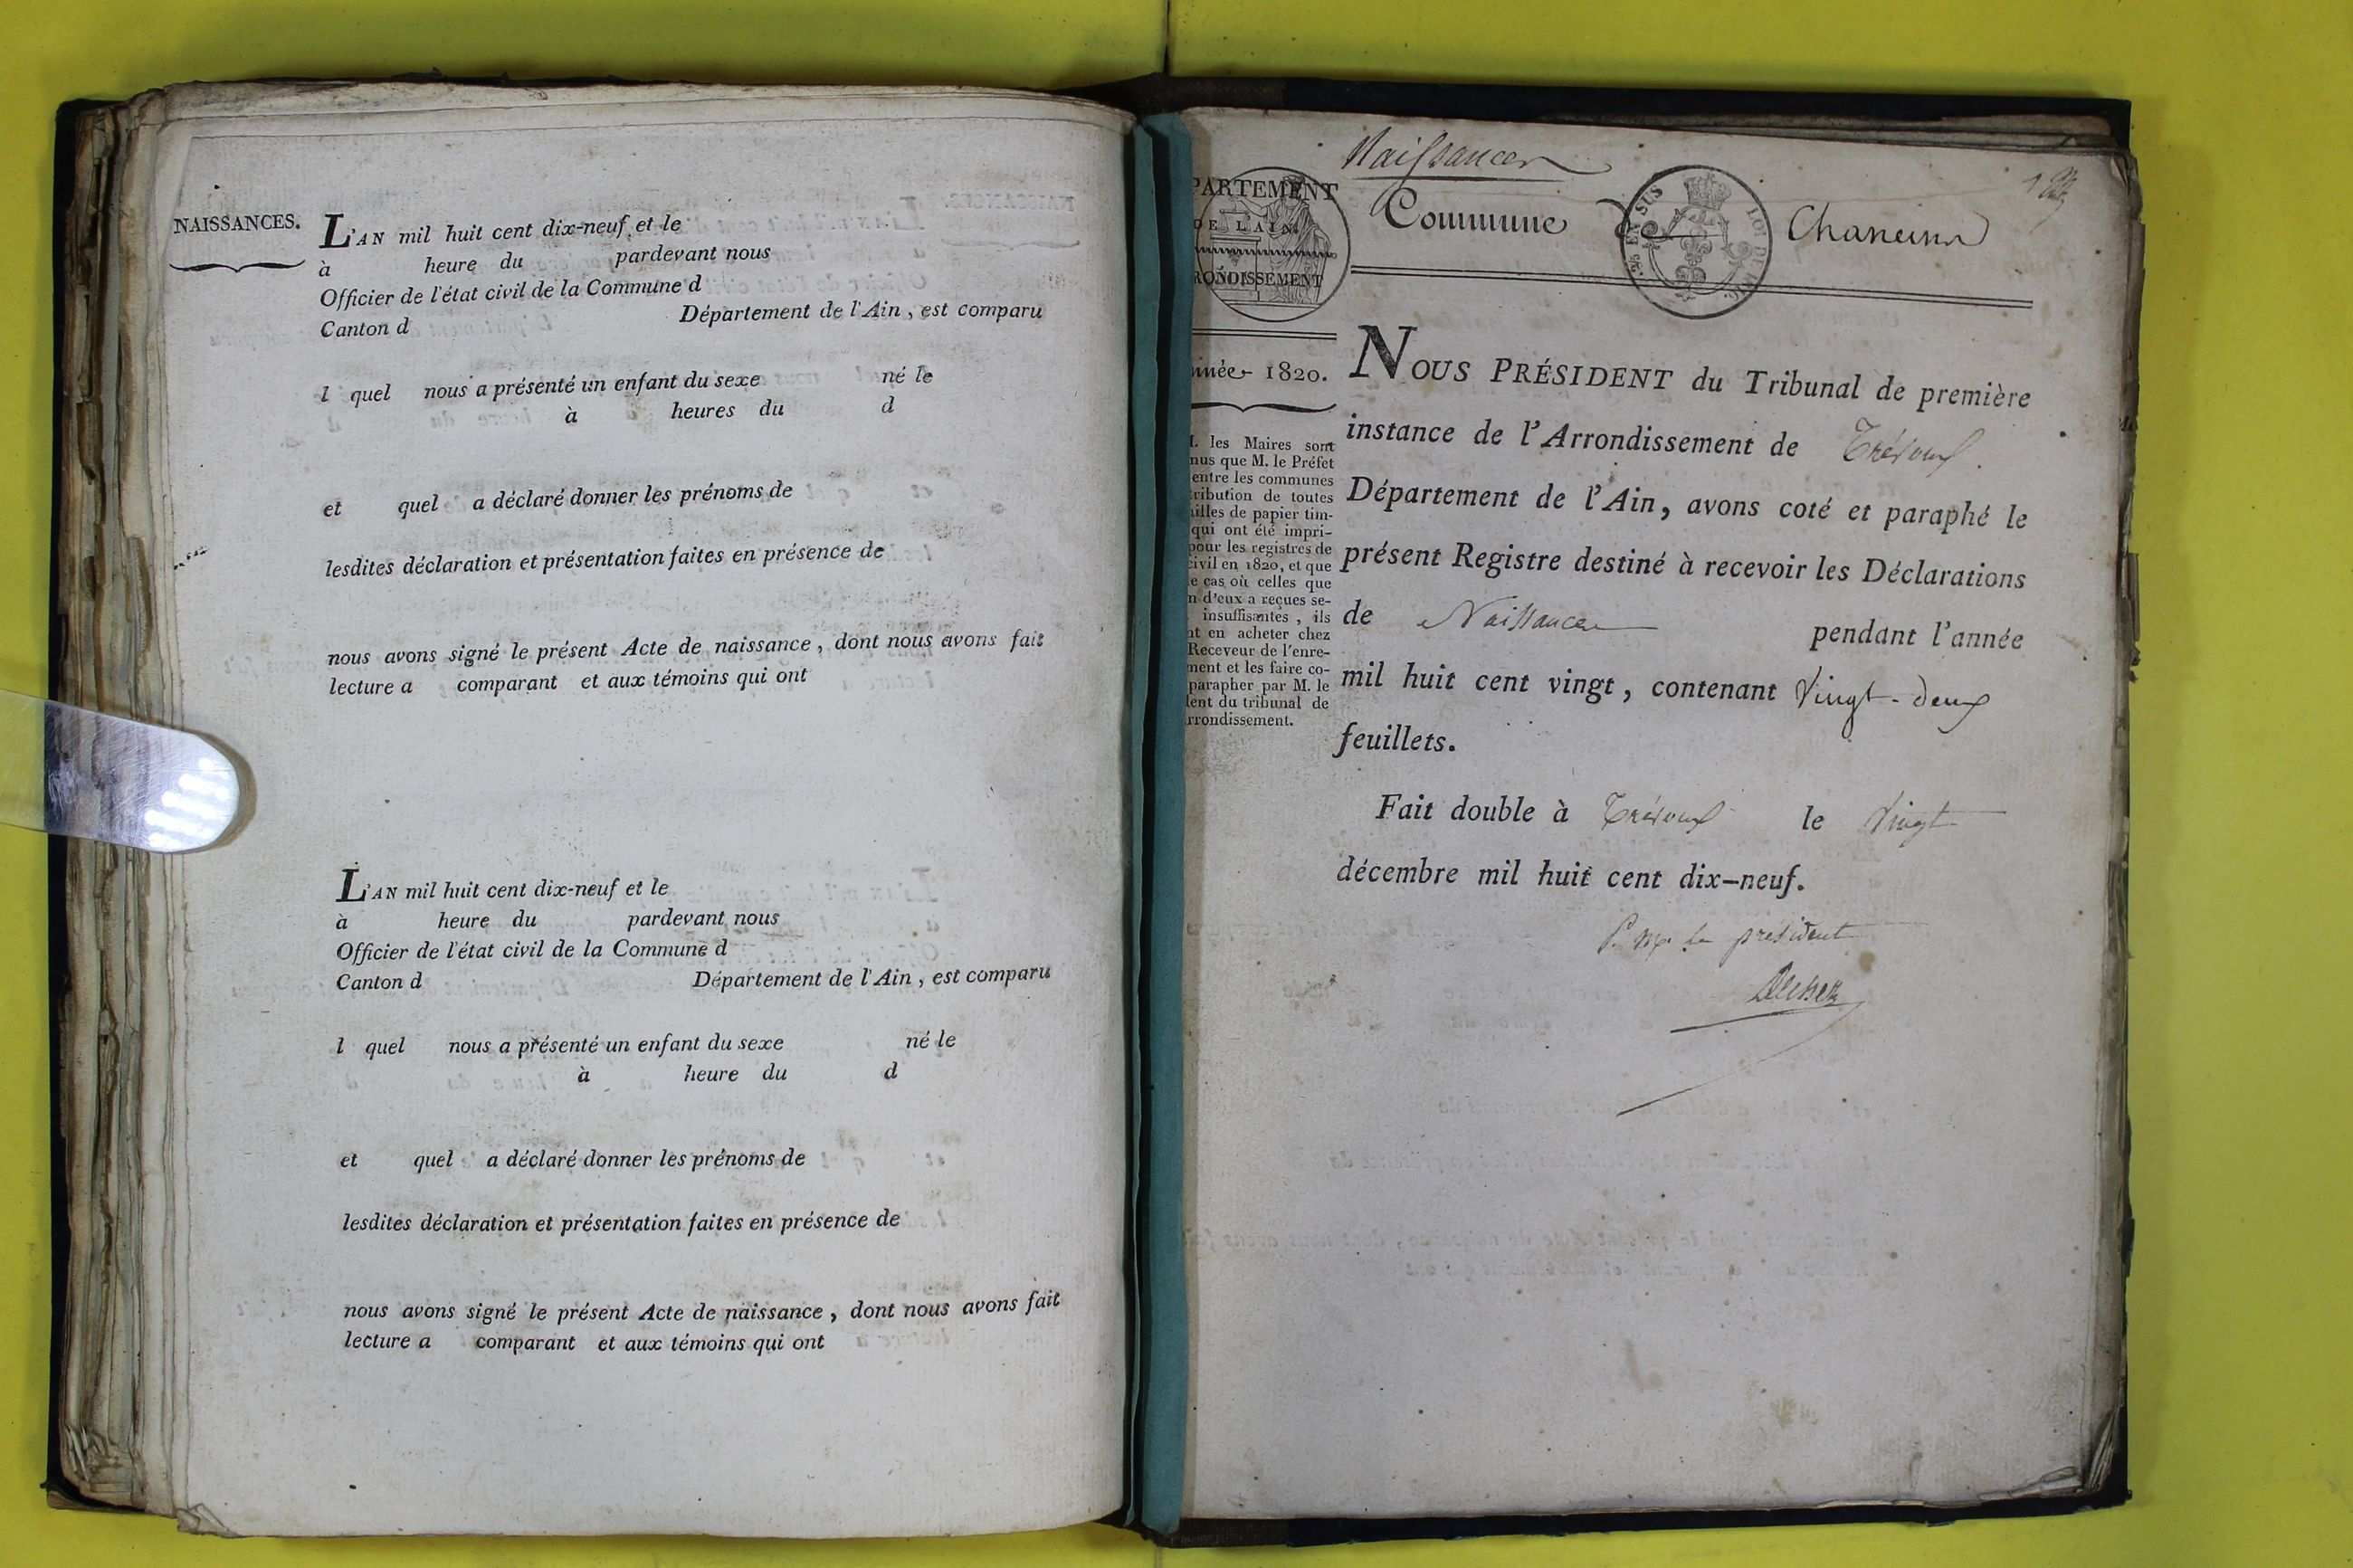 NAISSANCES.
L'AN mil huit cent dix-neuf et le
à heure du pardevant nous
Officier de l'état civil de la Commune d
Canton d Département de l'Ain, est comparu
l quel nous a présenté un enfant du sexe né le
à heures du d
et quel a déclaré donner les prénoms de
lesdites déclaration et présentation faites en présence de
nous avons signé le présent Acte de naissance, dont nous avons fait
lecture a comparant et aux témoins qui ont
L'AN mil huit cent dix-neuf et le
à heure du pardevant nous
Officier de l'état civil de la Commune d
Canton d Département de l'Ain, est comparu
l quel nous a présenté un enfant du sexe né le
à heure du d
et quel a déclaré donner les prénoms de
lesdites déclaration et présentation faites en présence de
nous avons signé le présent Acte de naissance, dont nous avons fait
lecture a comparant et aux témoins qui ont
Naissances
PARTEMENT
DE L'AIN.
RONDISSEMENT
Commune de Chaneins
EN SUS
LOI DE
nnée 1820.
M. les Maires sont
nus que M. le Préfet
entre les communes
tribution de toutes
uilles de papier tim-
qui ont été impri-
pour les registres de
civil en 1820, et que
e cas où celles que
n d'eux a reçues se-
insuffisantes, ils
nt en acheter chez
Receveur de l'enre-
ment et les faire co-
parapher par M. le
dent du tribunal de
rrondissement.
NOUS PRÉSIDENT du Tribunal de première
instance de l'Arrondissement de Trévoux
Département de l'Ain, avons coté et paraphé le
présent Registre destiné à recevoir les Déclarations
de Naissances pendant l'année
mil huit cent vingt, contenant Vingt-deux
feuillets.
Fait double à Trévoux le Vingt
décembre mil huit cent dix-neuf.
P. Mr le président